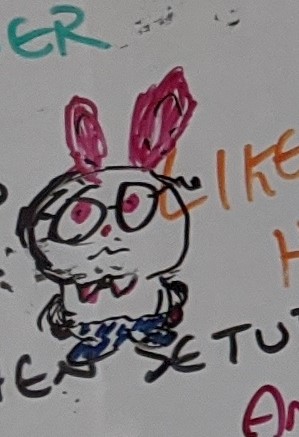 ER
LIKE
H
EN SETUT
An